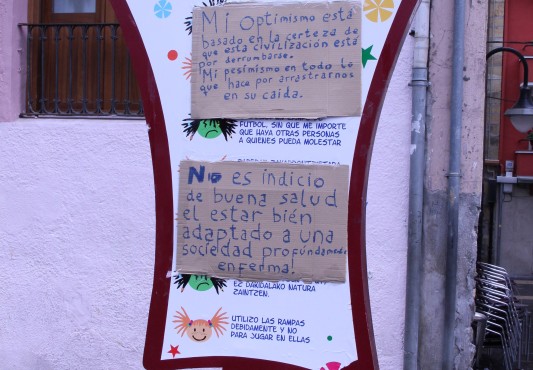 Mi optimismo está
basado en la certeza de
que esta civilización está
por derrumbarse.
Mi pesimismo en todo lo
que hace por arrastrarnos
en su caída.
FUTBOL, SIN QUE ME IMPORTE
QUE HAYA OTRAS PERSONAS
A QUIENES PUEDA MOLESTAR
No es indicio
de buena salud
el estar bién
adaptado a una
sociedad profúndamente
enferma!
EZ DARIDALAKO NATURA
ZAINTZEN.
UTILIZO LAS RAMPAS
DEBIDAMENTE Y NO
PARA JUGAR EN ELLAS